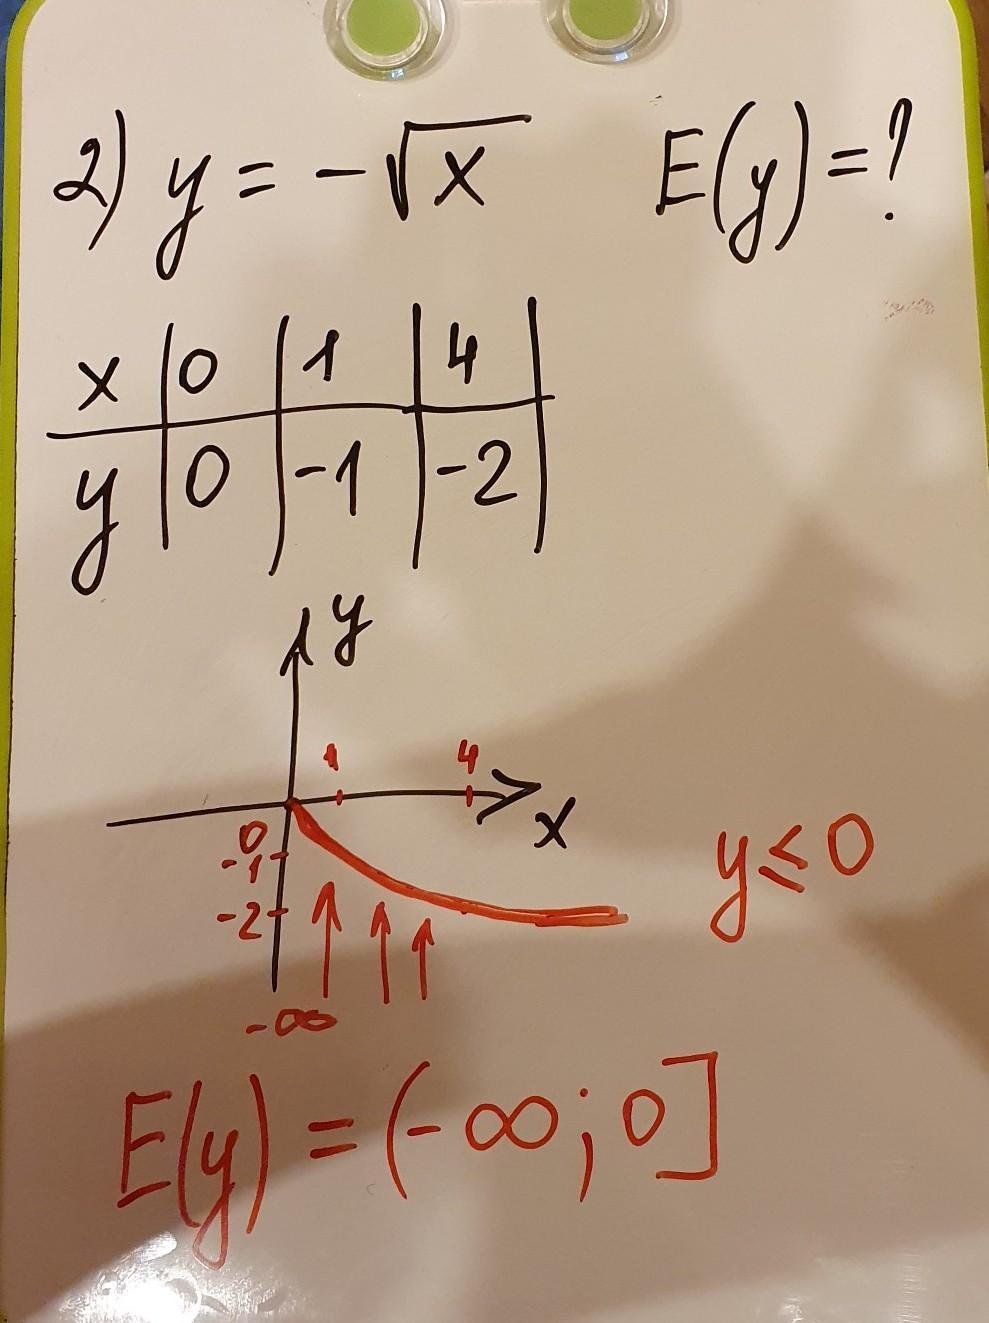 2) y = -√x E(y)=?
x | 0 | 1 | 4
y | 0 | -1 | -2
y
1 4
x
0
-1
-2
y ≤ 0
-∞
E(y) = (-∞; 0]